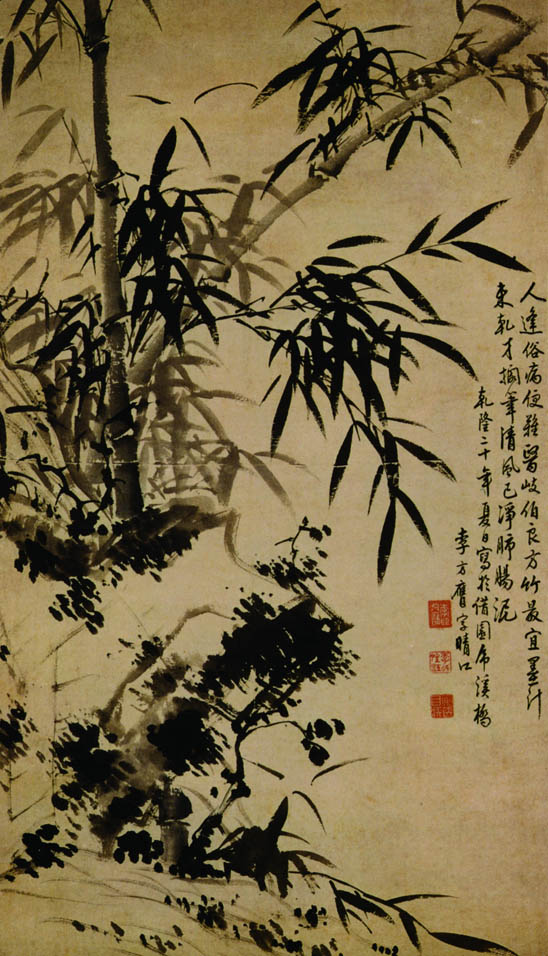 人逢俗病便難醫岐伯良方竹最宜墨汁
未乾才擱筆清風已淨肺腸泥
乾隆二十年夏日寫於借園虎溪橋
李方膺字晴江